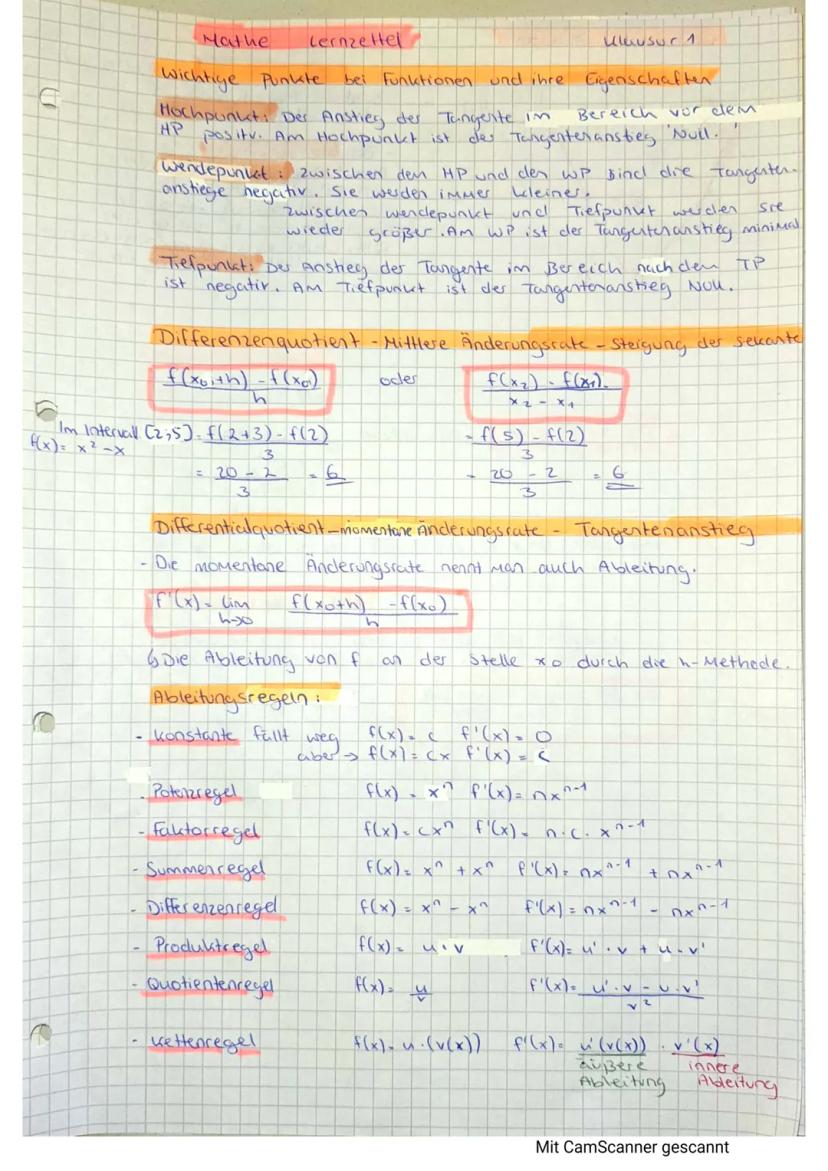 Mathe Lernzettel Klausur 1
Wichtige Punkte bei Funktionen und ihre Eigenschaften
Hochpunkt: Der Anstieg der Tangente im Bereich vor dem
HP positiv. Am Hochpunkt ist der Tangentenanstieg Null.
Wendepunkt: Zwischen dem HP und den WP sind die Tangenten-
anstiege negativ. Sie werden immer kleiner.
Zwischen Wendepunkt und Tiefpunkt werden sie
wieder größer. Am WP ist der Tangentenanstieg minimal
Tiefpunkt: Der Anstieg der Tangente im Bereich nach dem TP
ist negativ. Am Tiefpunkt ist der Tangentenanstieg Null.
Differenzenquotient - Mittlere Änderungsrate - Steigung der Sekante
f(x0+h) - f(x0) / h oder f(x2) - f(x1) / x2 - x1
Im Intervall [2;5] = f(2+3) - f(2) / 3 = f(5) - f(2) / 3
f(x) = x² - x
= 20 - 2 / 3 = 6 = 20 - 2 / 3 = 6
Differentialquotient - momentane Änderungsrate - Tangentenanstieg
- Die momentane Änderungsrate nennt man auch Ableitung.
f'(x) = lim h->0 f(x0+h) - f(x0) / h
↳ Die Ableitung von f an der Stelle x0 durch die h-Methode.
Ableitungsregeln:
- Konstante fällt weg f(x) = c f'(x) = 0
aber → f(x) = cx f'(x) = c
- Potenzregel f(x) = xⁿ f'(x) = nxⁿ⁻¹
- Faktorregel f(x) = cxⁿ f'(x) = n·c·xⁿ⁻¹
- Summenregel f(x) = xⁿ + xⁿ f'(x) = nxⁿ⁻¹ + nxⁿ⁻¹
- Differenzenregel f(x) = xⁿ - xⁿ f'(x) = nxⁿ⁻¹ - nxⁿ⁻¹
- Produktregel f(x) = u·v f'(x) = u'·v + u·v'
- Quotientenregel f(x) = u/v f'(x) = u'·v - u·v' / v²
- Kettenregel f(x) = u·(v(x)) f'(x) = u'(v(x)) · v'(x)
äußere innere
Ableitung Ableitung
Mit CamScanner gescannt